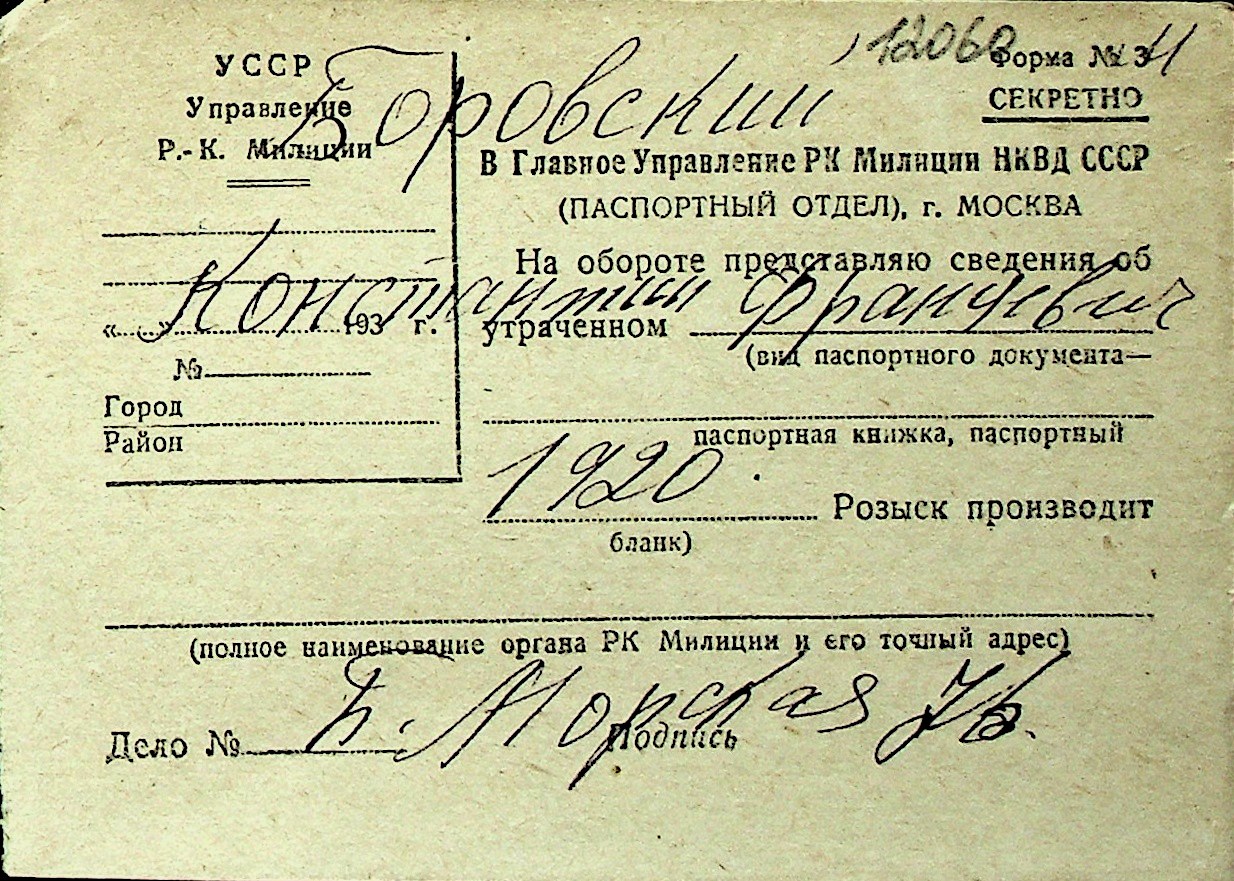 12060
УССР
Форма № 3
Управление
СЕКРЕТНО
Р.-К. Милиции
Боровский
В Главное Управление РК Милиции НКВД СССР
(ПАСПОРТНЫЙ ОТДЕЛ), г. МОСКВА
На обороте представляю сведения об
Константин Францевич
« » 193 г.
утраченном
(вид паспортного документа—
№
Город
Район
паспортная книжка, паспортный
1920
Розыск производит
бланк)
(полное наименование органа РК Милиции и его точный адрес)
Б. Морская
Дело №
Подпись